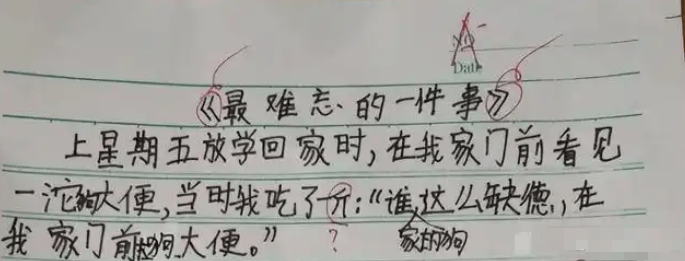 A-
No.
Date
《最难忘的一件事》
上星期五放学回家时,在我家门前看见
一沱狗大便,当时我吃了一斤:“谁家的狗这么缺德,在
我家门前拋狗大便。”
?